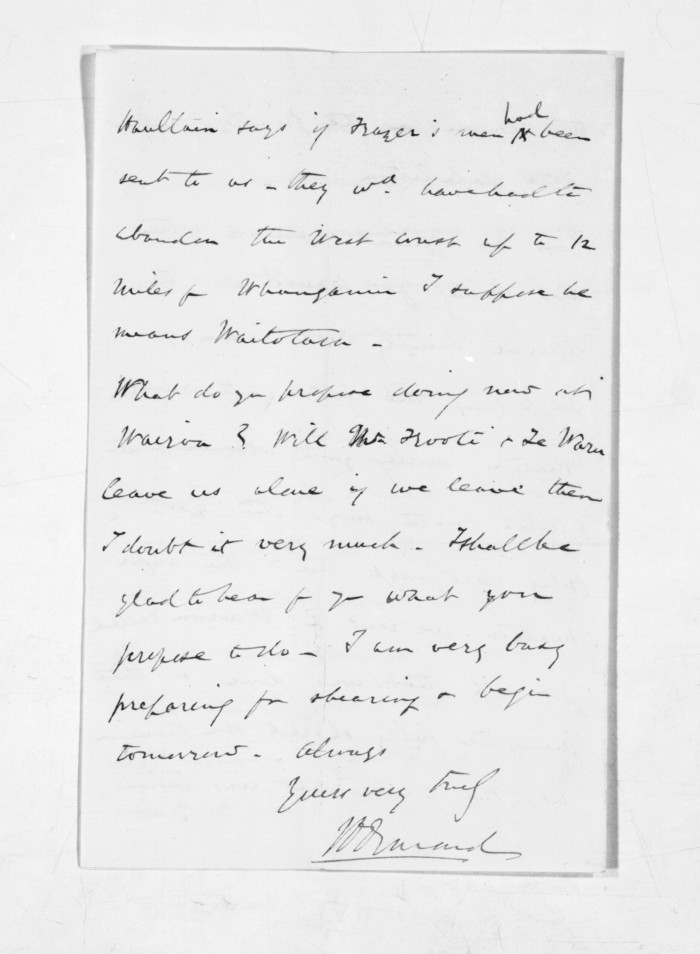 Haultain says if Frazer's men had been
sent to us - they wd. have had to
abandon the West Coast up to 12
miles fr Whanganui I suppose he
means Waitotara -
What do yu propose doing now at
Wairoa? Will Te Kooti & Te Waru
leave us alone if we leave them
I doubt it very much - I shall be
glad to hear fr yu what you
propose to do - I am very busy
preparing for shearing & begin
tomorrow - Always
Yours very truly
JD Ormond